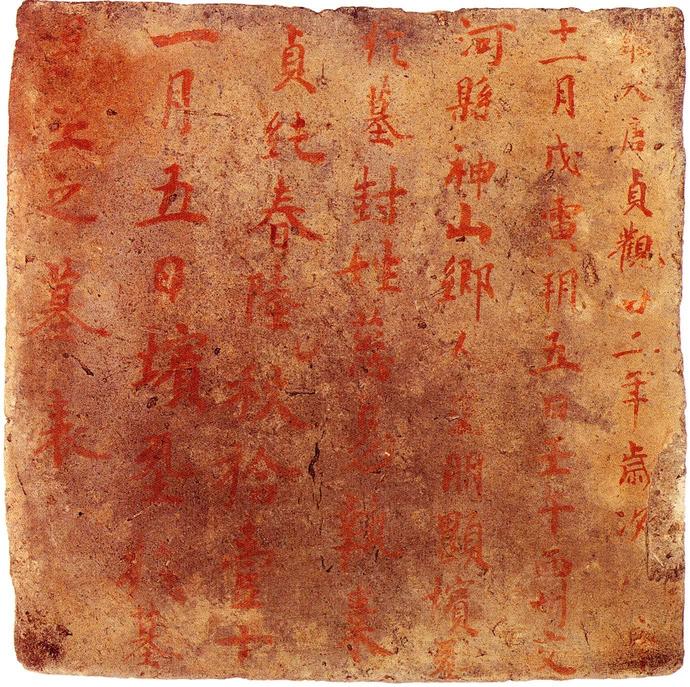 維大唐貞觀廿二年歲次
十一月戊寅朔五日壬午西州交
河縣神山鄉人朋顯殯
於墓封姓
貞純春陸秋拾壹十
一月五日殯於墓
之墓表